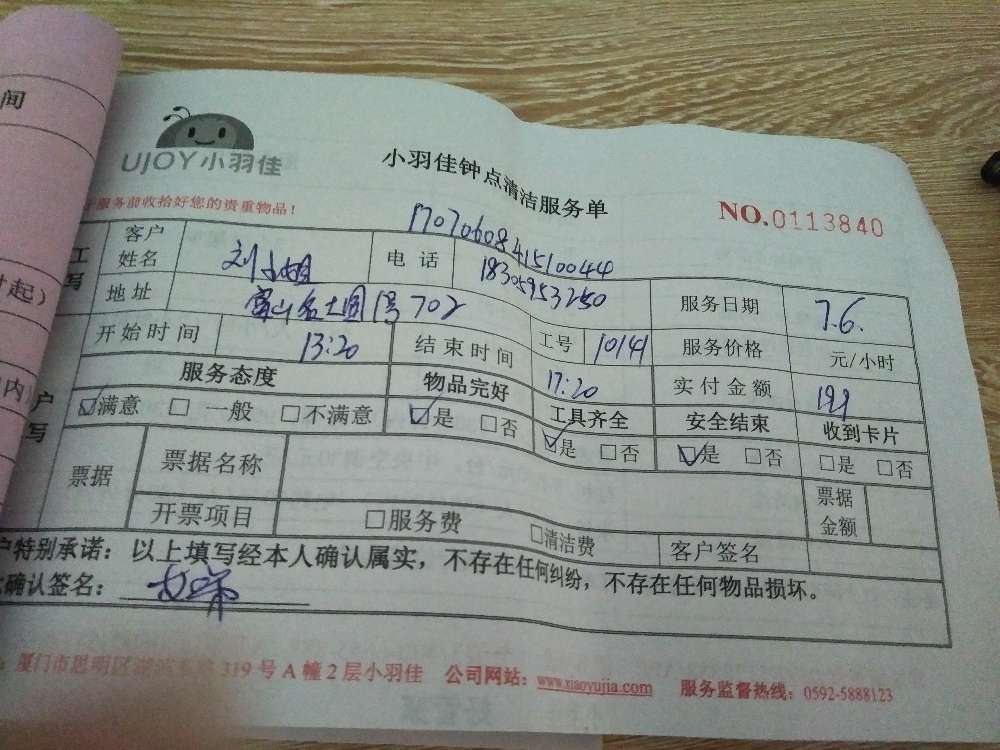 间
UJOY小羽佳
小羽佳钟点清洁服务单
NO.0113840
服务前收拾好您的贵重物品！
1707060841510044
工
写
客户姓名
刘小姐
电 话
18305953250
服务日期
7.6.
时起）
地址
富山名士园1号702
开始时间
13:20
结束时间
17:20
工号
10141
服务价格
元/小时
实付金额
户
写
内）
服务态度
物品完好
工具齐全
安全结束
收到卡片
☑满意 □ 一般 □不满意
☑是 □否
☑是 □否
☑是 □否
□是 □否
票据
票据名称
票据金额
开票项目
□服务费
□清洁费
客户签名
户特别承诺：以上填写经本人确认属实，不存在任何纠纷，不存在任何物品损坏。
确认签名：
厦门市思明区
319号A幢2层小羽佳 公司网站：www.xiaoyujia.com 服务监督热线：0592-5888123